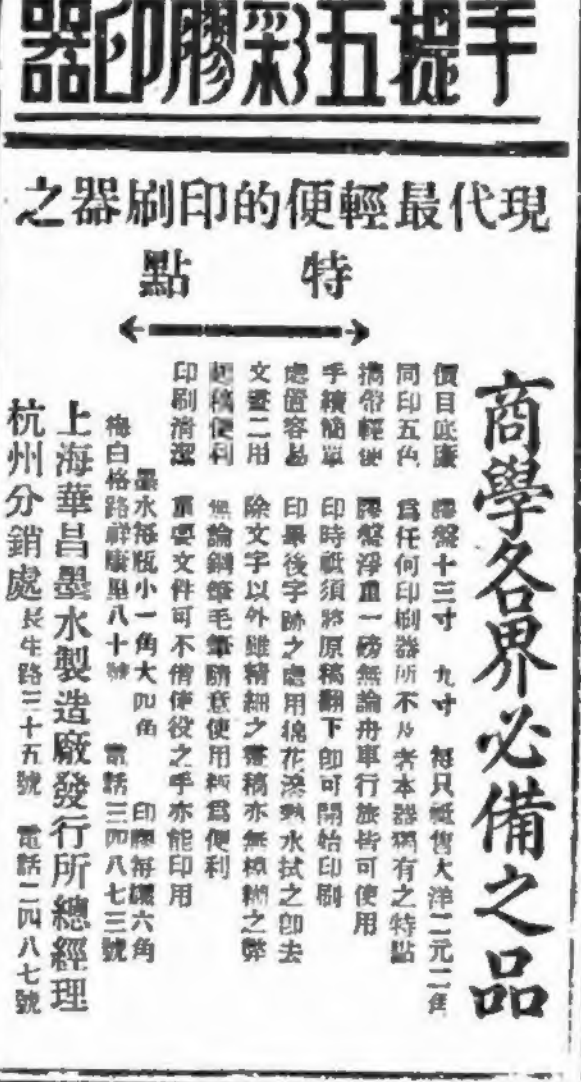 手提五彩膠印器
現代最輕便的印刷器之
特點
商學各界必備之品
價目低廉 膠盤十三寸 九寸 每只祗售大洋二元二角
同印五色 為任何印刷器所不及者本器獨有之特點
攜帶輕便 膠盤淨重一磅無論舟車行旅皆可使用
手續簡單 印時祗須將原稿翻下卽可開始印刷
處置容易 印畢後字跡之處用棉花浸熱水拭之卽去
文畫二用 除文字以外雖精細之畫稿亦無模糊之弊
起稿便利 無論鋼筆毛筆隨意使用極為便利
印刷清潔 重要文件可不借使役之手亦能印用
墨水每瓶小一角大四角 印膠每罐六角
梅白格路祥康里八十號 電話三四八七三號
上海華昌墨水製造廠發行所總經理
杭州分銷處長生路三十五號 電話二四八七號